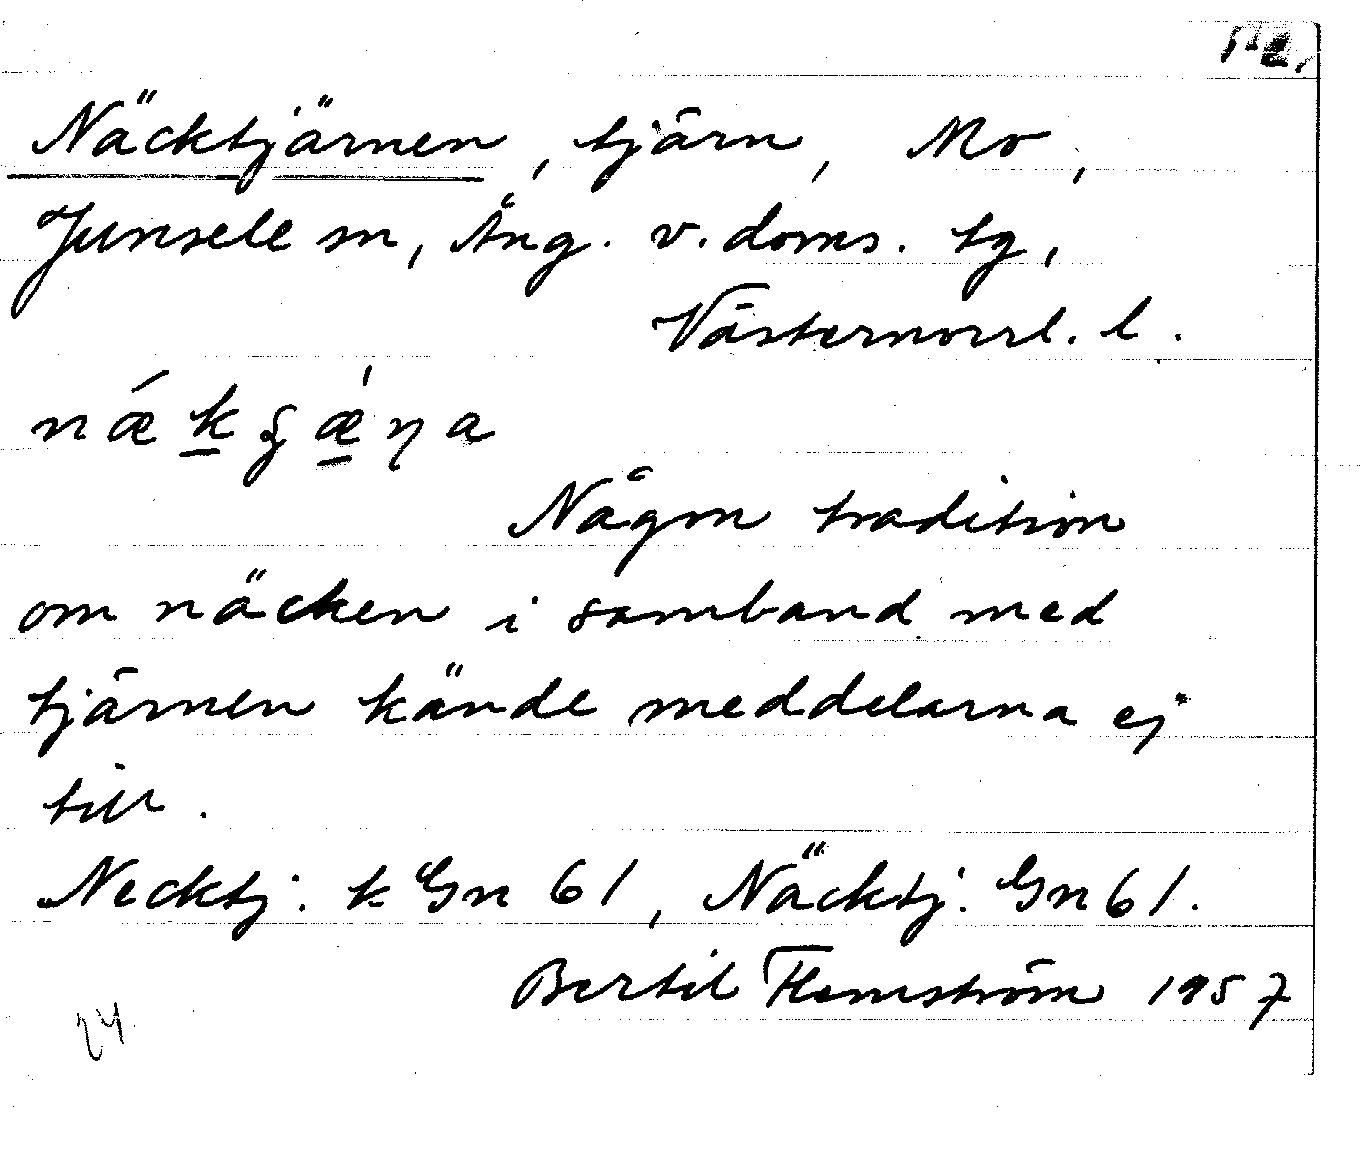 Näcktjärnen, tjärn, Mo,
Junsele sn, Ång. v. doms. tg,
Västernorrl. l.
Någon tradition
om näcken i samband med
tjärnen kände meddelarna ej
till.
Necktj. k Gn 61, Näcktj. Gn 61.
Bertil Flemström 1957
24